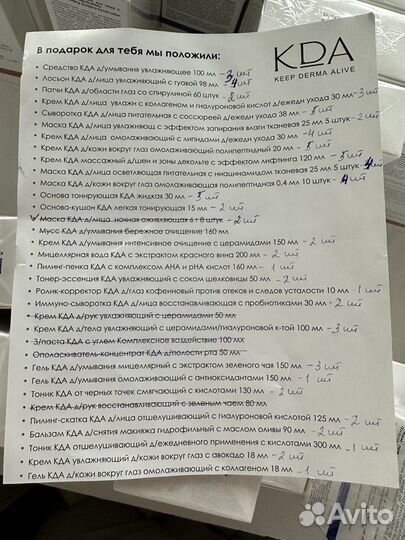 В подарок для тебя мы положили:
KDA
KEEP DERMA ALIVE
• Средство КДА д/умывания увлажняющее 100 мл – 3 шт
• Лосьон КДА д/лица увлажняющий с гуавой 98 мл – 4 шт
• Патчи КДА д/области глаз со спирулиной 60 штук – 2 шт
• Крем КДА д/лица увлажн с коллагеном и гиалуроновой кислот д/ежедн ухода 30 мл – 3 шт
• Сыворотка КДА д/лица питательная с соссюреей д/ежедн ухода 38 мл – 5 шт
• Маска КДА д/лица увлажняющ с эффектом запирания влаги тканевая 25 мл 5 штук – 2 шт
• Крем КДА д/лица омолаживающий с липидами д/ежедн ухода 30 мл – 4 шт
• Крем КДА д/кожи вокруг глаз омолаживающий полипептидный 20 мл – 5 шт
• Крем КДА массажный д/шеи и зоны декольте с эффектом лифтинга 120 мл – 5 шт
• Маска КДА д/лица осветляющая питательная с ниацинамидом тканевая 25 мл 5 штук – 4 шт
• Маска КДА д/кожи вокруг глаз омолаживающая полипептидная 0,4 мл 10 штук – 4 шт
• Основа тонирующая КДА жидкая 30 мл – 5 шт
• Основа-кушон КДА легкая тонирующая 15 мл – 2 шт
✓ Маска КДА д/лица ночная оживляющая 6 г 8 штук – 2 шт
• Мусс КДА д/умывания бережное очищение 160 мл
• Крем КДА д/умывания интенсивное очищение с церамидами 150 мл – 2 шт
• Мицеллярная вода КДА с экстрактом красного вина 200 мл – 2 шт
• Пилинг-пенка КДА с комплексом АНА и рНА кислот 160 мл – 1 шт
• Тонер-эссенция КДА увлажняющий с соком шелковицы 50 мл – 2 шт
• Ролик-корректор КДА д/глаз кофеиновый против отеков и следов усталости 10 мл – 1 шт
• Иммуно-сыворотка КДА д/лица восстанавливающая с пробиотиками 30 мл – 2 шт
• Крем КДА д/рук увлажняющий с церамидами 50 мл
• Крем КДА д/тела увлажняющий с церамидами/гиалуроновой к-той 100 мл – 3 шт
• З/паста КДА с углем Комплексное воздействие 100 мл
• Ополаскиватель-концентрат КДА д/полости рта 50 мл
• Гель КДА д/умывания мицеллярный с экстрактом зеленого чая 150 мл – 3 шт
• Гель КДА д/умывания омолаживающий с антиоксидантами 150 мл – 1 шт
• Тоник КДА от черных точек смягчающий с кислотами 130 мл – 2 шт
• Крем КДА д/рук восстанавливающий с зеленым чаем 80 мл
• Пилинг-скатка КДА д/лица отшелушивающий с гиалуроновой кислотой 125 мл – 2 шт
• Бальзам КДА д/снятия макияжа гидрофильный с маслом оливы 90 мл – 2 шт
• Тоник КДА отшелушивающий д/ежедневного применения с кислотами 300 мл – 1 шт
• Крем КДА увлажняющий д/кожи вокруг глаз с авокадо 18 мл – 2 шт
• Гель КДА д/кожи вокруг глаз омолаживающий с коллагеном 18 мл – 1 шт
Avito